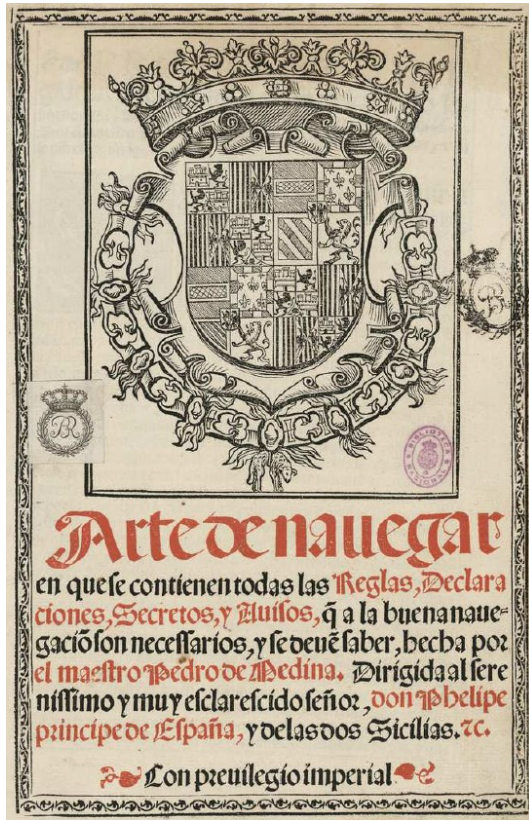 BR
BIBLIOTECA NACIONAL
Arte de nauegar
en que se contienen todas las Reglas, Declara
ciones, Secretos, y Auisos, q̃ a la buena naue-
gaciõ son necessarios, y se deuẽ saber, hecha por
el maestro Pedro de Medina. Dirigida al sere
nissimo y muy esclarescido señor, don Phelipe
principe de España, y delas dos Sicilias. ⁊c.
Con preuilegio imperial